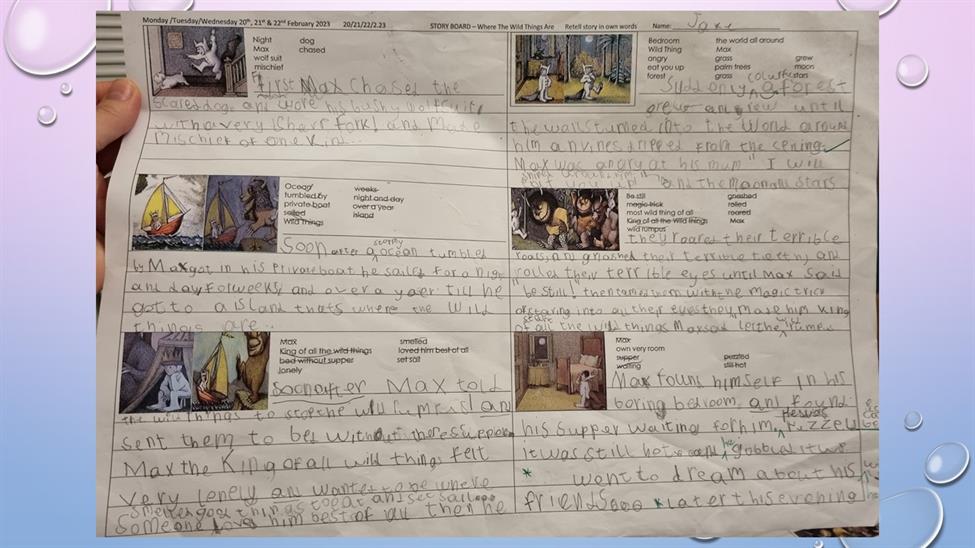 Monday /Tuesday/Wednesday 20th, 21st & 22nd February 2023 20/21/22/2.23 STORY BOARD – Where The Wild Things Are Retell story in own words Name:
Night dog
Max chased
wolf suit
mischief
First Max chased the
scared dog and wore his
with a very sharp fork! and made
mischief of one kind...
Bedroom the world all around
Wild Thing Max
angry grass grew
eat you up palm trees moon
forest grass stars
Suddenly a colourful forest
grew and grew until
the walls turned into the world around
him an vines dripped from the ceiling
Max was angry at his mum " I will
eat you up " and the moon and stars
Ocean weeks
tumbled by night and day
private boat over a year
sailed island
Wild Things
Soon after a stormy ocean tumbled
by Max got in his private boat he sailed for a night
and day for weeks and over a year till he
got to a island thats where the wild
things are...
Be still gnashed
magic trick rolled
most wild thing of all roared
King of all the Wild things Max
wild rumpus
they roared their terrible
roars, and gnashed their terrible teeth and
rolled their terrible eyes until Max said
"be still!" then tamed them with the magic trick
of staring into all their eyes they made him king
of all the wild things Max said let the wild
Max smelled
King of all the wild things loved him best of all
bed without supper set sail
lonely
Soon after Max told
the wild things to stop the wild rumpus! an
sent them to bed without
Max the King of all wild things felt
very lonely an wanted to be where
someone loves him best of all then he
smelled good things to eat and set sail...
Max
own very room
supper puzzled
waiting still hot
Max found himself in his
boring bedroom and found
his supper waiting for him
it was still hot and he
* went to dream about his
friends... * later this evening